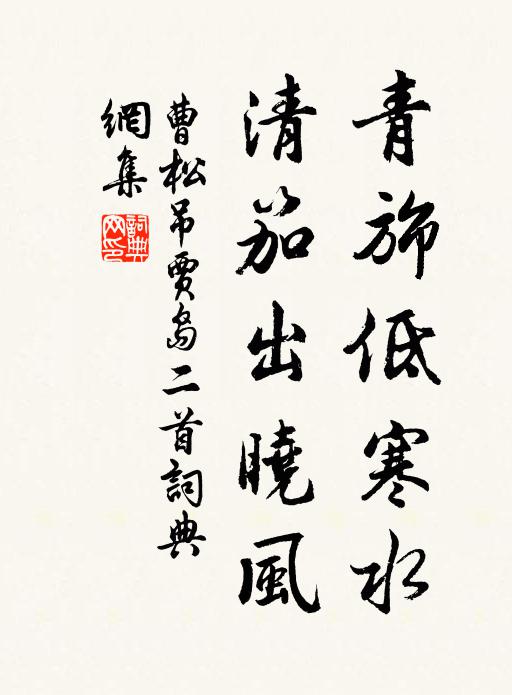 青旆低寒水
清笳出曉風
曹松吊賈島二首詞典
網集
詞典網印